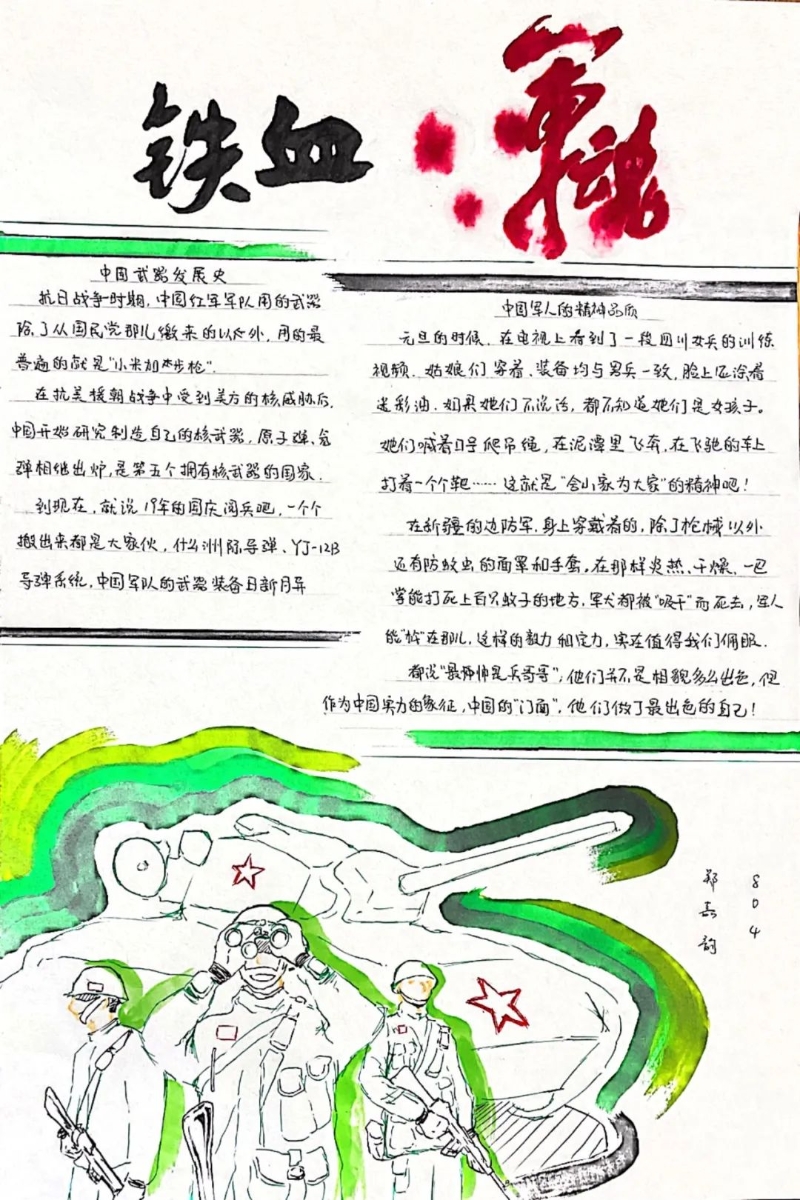 铁血军魂
中国武器发展史
抗日战争时期,中国红军军队用的武器
除了从国民党那儿缴来的以外,用的最
普遍的就是"小米加步枪".
在抗美援朝战争中受到美方的核威胁后,
中国开始研究制造自己的核武器,原子弹、氢
弹相继出炉,是第五个拥有核武器的国家.
到现在,就说19年的国庆阅兵吧,一个个
搬出来都是大家伙,什么洲际导弹、YJ-12B
导弹系统,中国军队的武器装备日新月异
中国军人的精神品质
元旦的时候,在电视上看到了一段四川女兵的训练
视频.姑娘们穿着、装备均与男兵一致,脸上还涂着
迷彩油.如果她们不说话,都不知道她们是女孩子。
她们喊着口号爬吊绳,在泥潭里飞奔,在飞驰的车上
打着一个个靶……这就是"舍小家为大家"的精神吧!
在新疆的边防军,身上穿戴着的,除了枪械以外
还有防蚊虫的面罩和手套,在那样炎热、干燥、一巴
掌能打死上百只蚊子的地方,军犬都被"吸干"而死去,军人
能"忮"在那儿,这样的毅力和定力,实在值得我们佩服.
都说"最帅的是兵哥哥",他们并不是相貌多么出色,但
作为中国实力的象征,中国的"门面",他们做了最出色的自己!
804
郑嘉韵